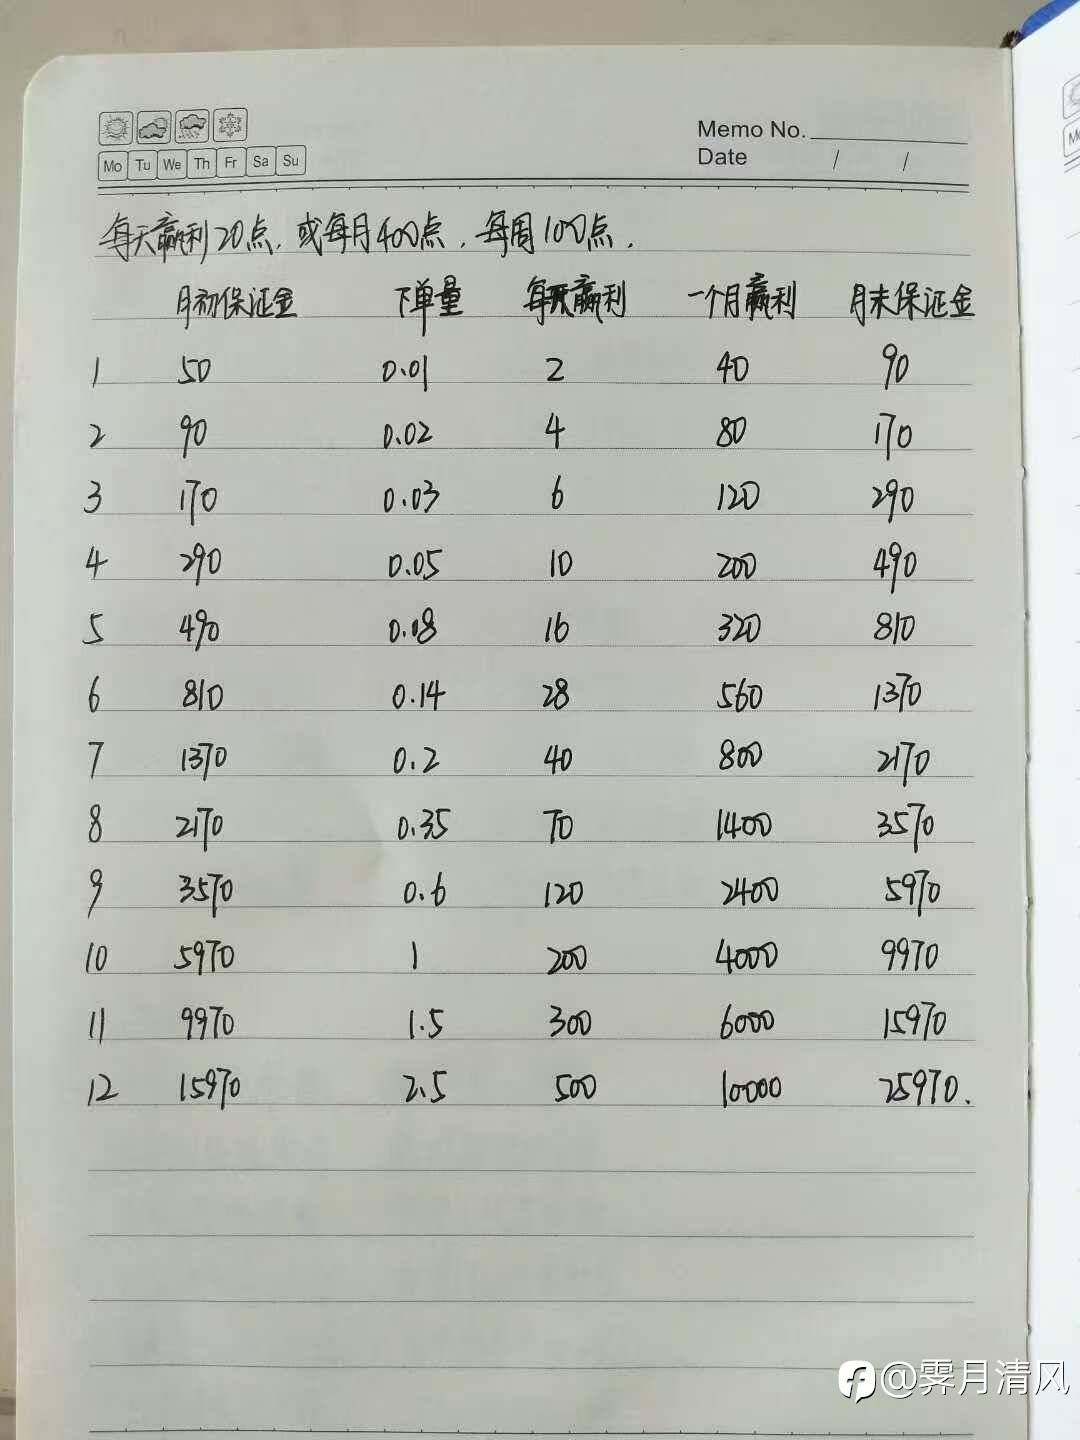 Memo No.
Mo Tu We Th Fr Sa Su
Date / /
每天赢利20点. 或每月400点, 每周100点.
月初保证金 下单量 每天赢利 一个月赢利 月末保证金
1 50 0.01 2 40 90
2 90 0.02 4 80 170
3 170 0.03 6 120 290
4 290 0.05 10 200 490
5 490 0.08 16 320 810
6 810 0.14 28 560 1370
7 1370 0.2 40 800 2170
8 2170 0.35 70 1400 3570
9 3570 0.6 120 2400 5970
10 5970 1 200 4000 9970
11 9970 1.5 300 6000 15970
12 15970 2.5 500 10000 25970.
@霁月清风